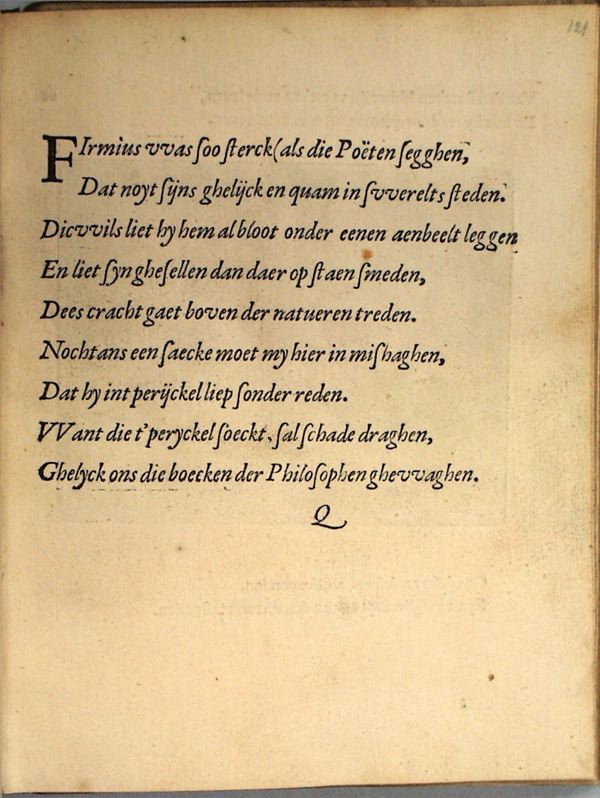 121
FIrmius vvas soo sterck (als die Poëten segghen,
Dat noyt sijns ghelijck en quam in svverelts steden.
Dicvvils liet hy hem al bloot onder eenen aenbeelt leggen
En liet syn ghesellen dan daer op staen smeden,
Dees cracht gaet boven der natueren treden.
Nochtans een saecke moet my hier in mishaghen,
Dat hy int perijckel liep sonder reden.
VVant die t'peryckel soeckt, sal schade draghen,
Ghelyck ons die boecken der Philosophen ghevvaghen.
Q